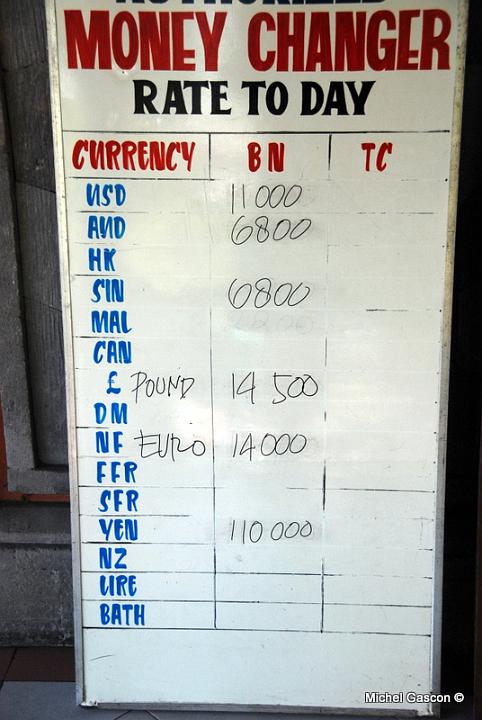 AUTHORIZED
MONEY CHANGER
RATE TO DAY
CURRENCY BN TC
USD 11 000
AUD 6800
HK
SIN 6800
MAL
CAN
£ POUND 14 500
DM
NF EURO 14000
FFR
SFR
YEN 110 000
NZ
LIRE
BATH
Michel Gascon ©